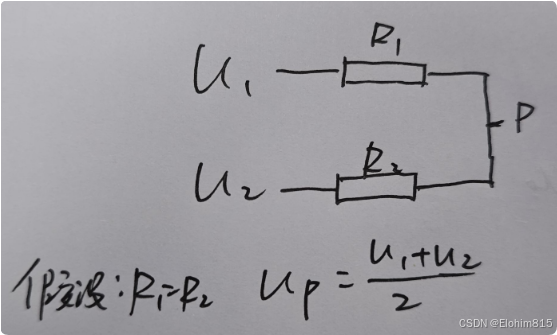 U₁
R₁
P
U₂
R₂
假设:R₁=R₂ Up = (U₁+U₂)/2
CSDN @Elohim815